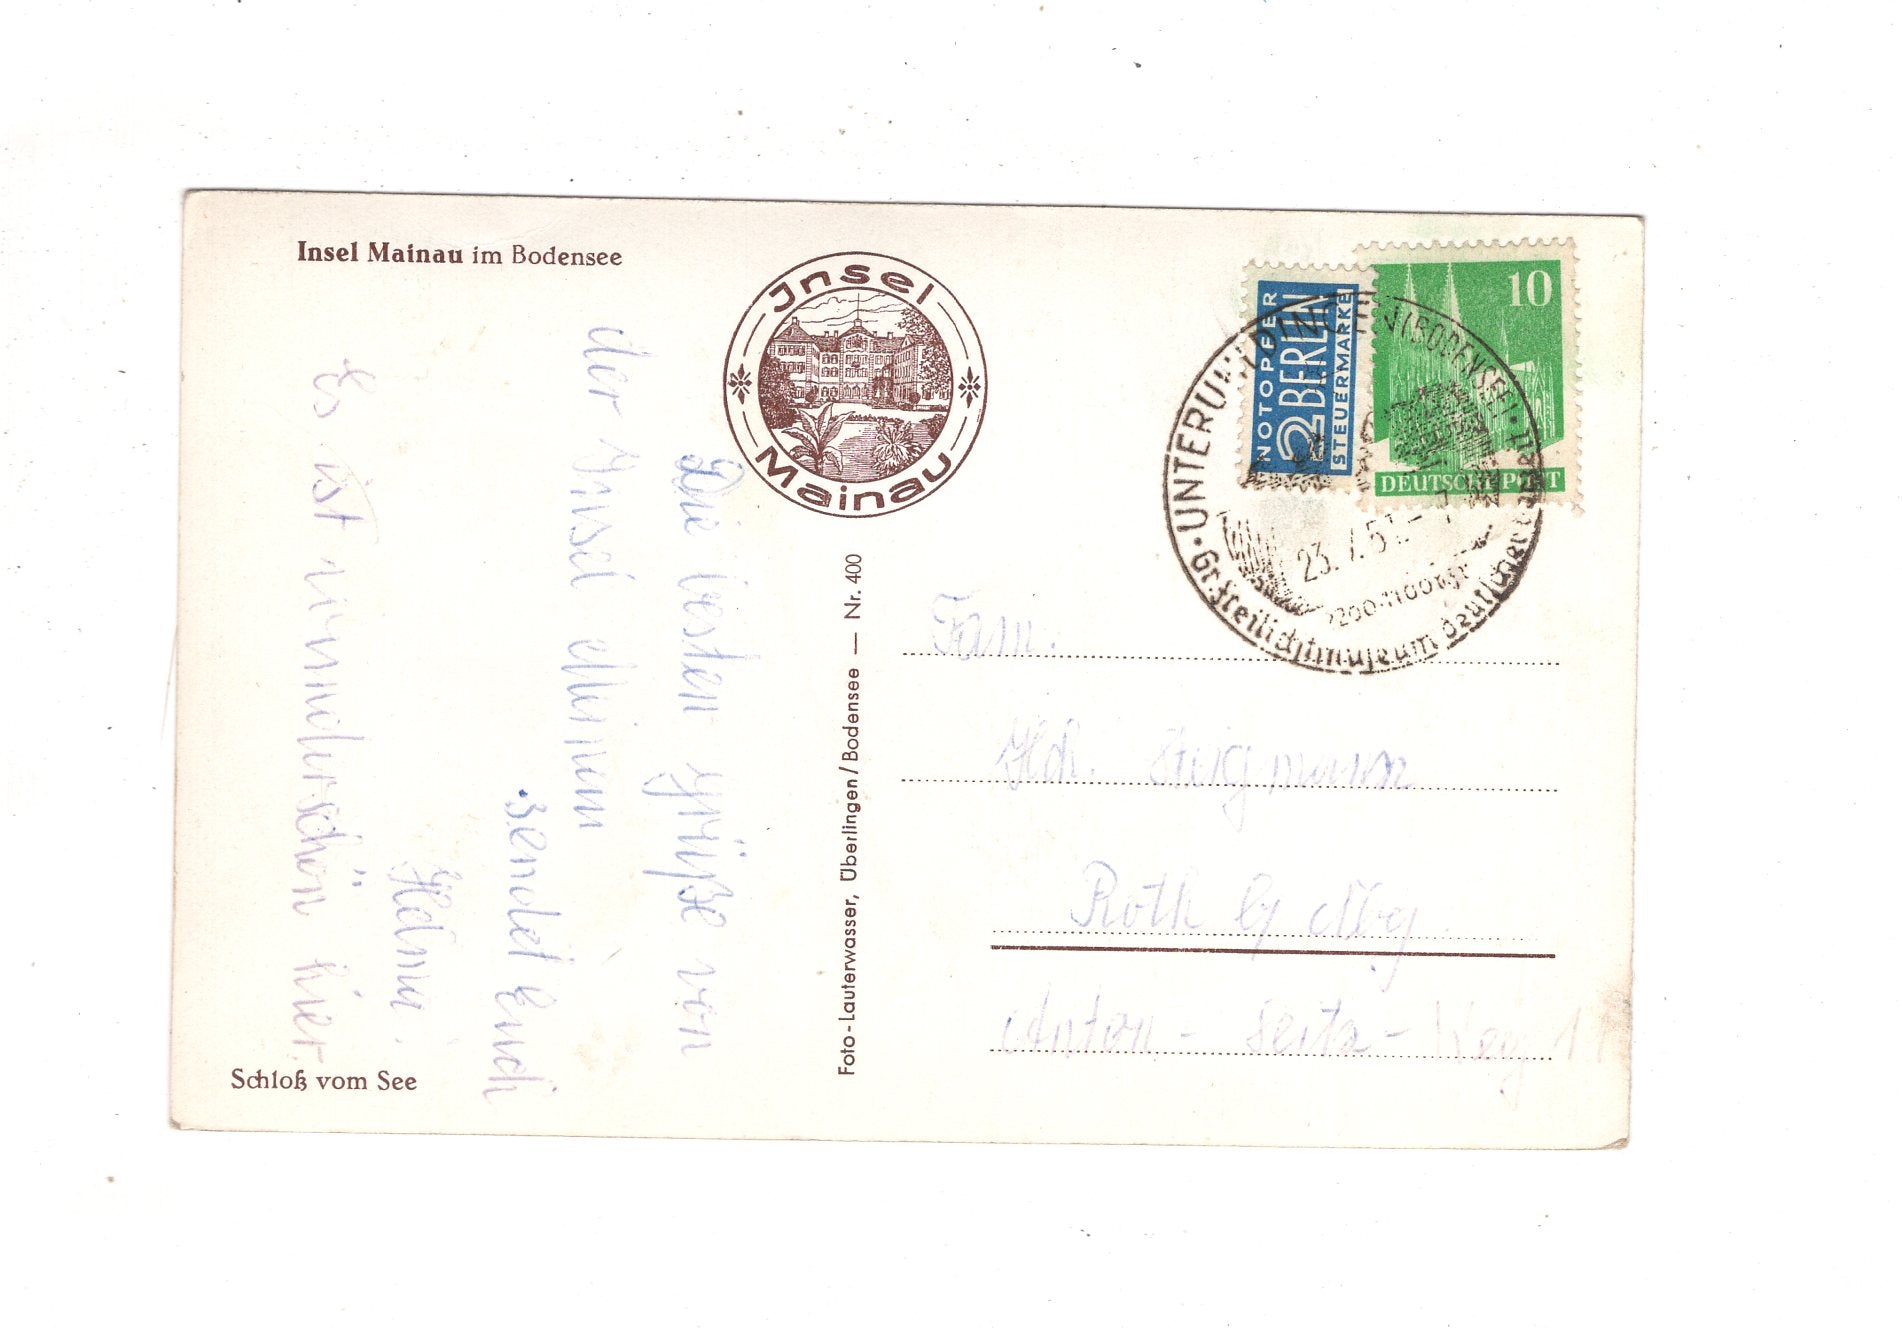 Insel Mainau im Bodensee
Jnsel
Mainau
Die besten Grüße von
der Insel
sendet Euch
Helmi.
Es ist wunderschön hier.
Schloß vom See
Foto-Lauterwasser, Überlingen/Bodensee — Nr. 400
NOTOPFER
2 BERLIN
STEUERMARKE
10
DEUTSCHE POST
UNTERUHLDINGEN (BODENSEE)
23. 7. 51 - 7
Gr. Freilichtmuseum deutscher Vorzeit
Fam.
Hch.
Roth b/ Nbg.
Anton - Seitz - Weg 11